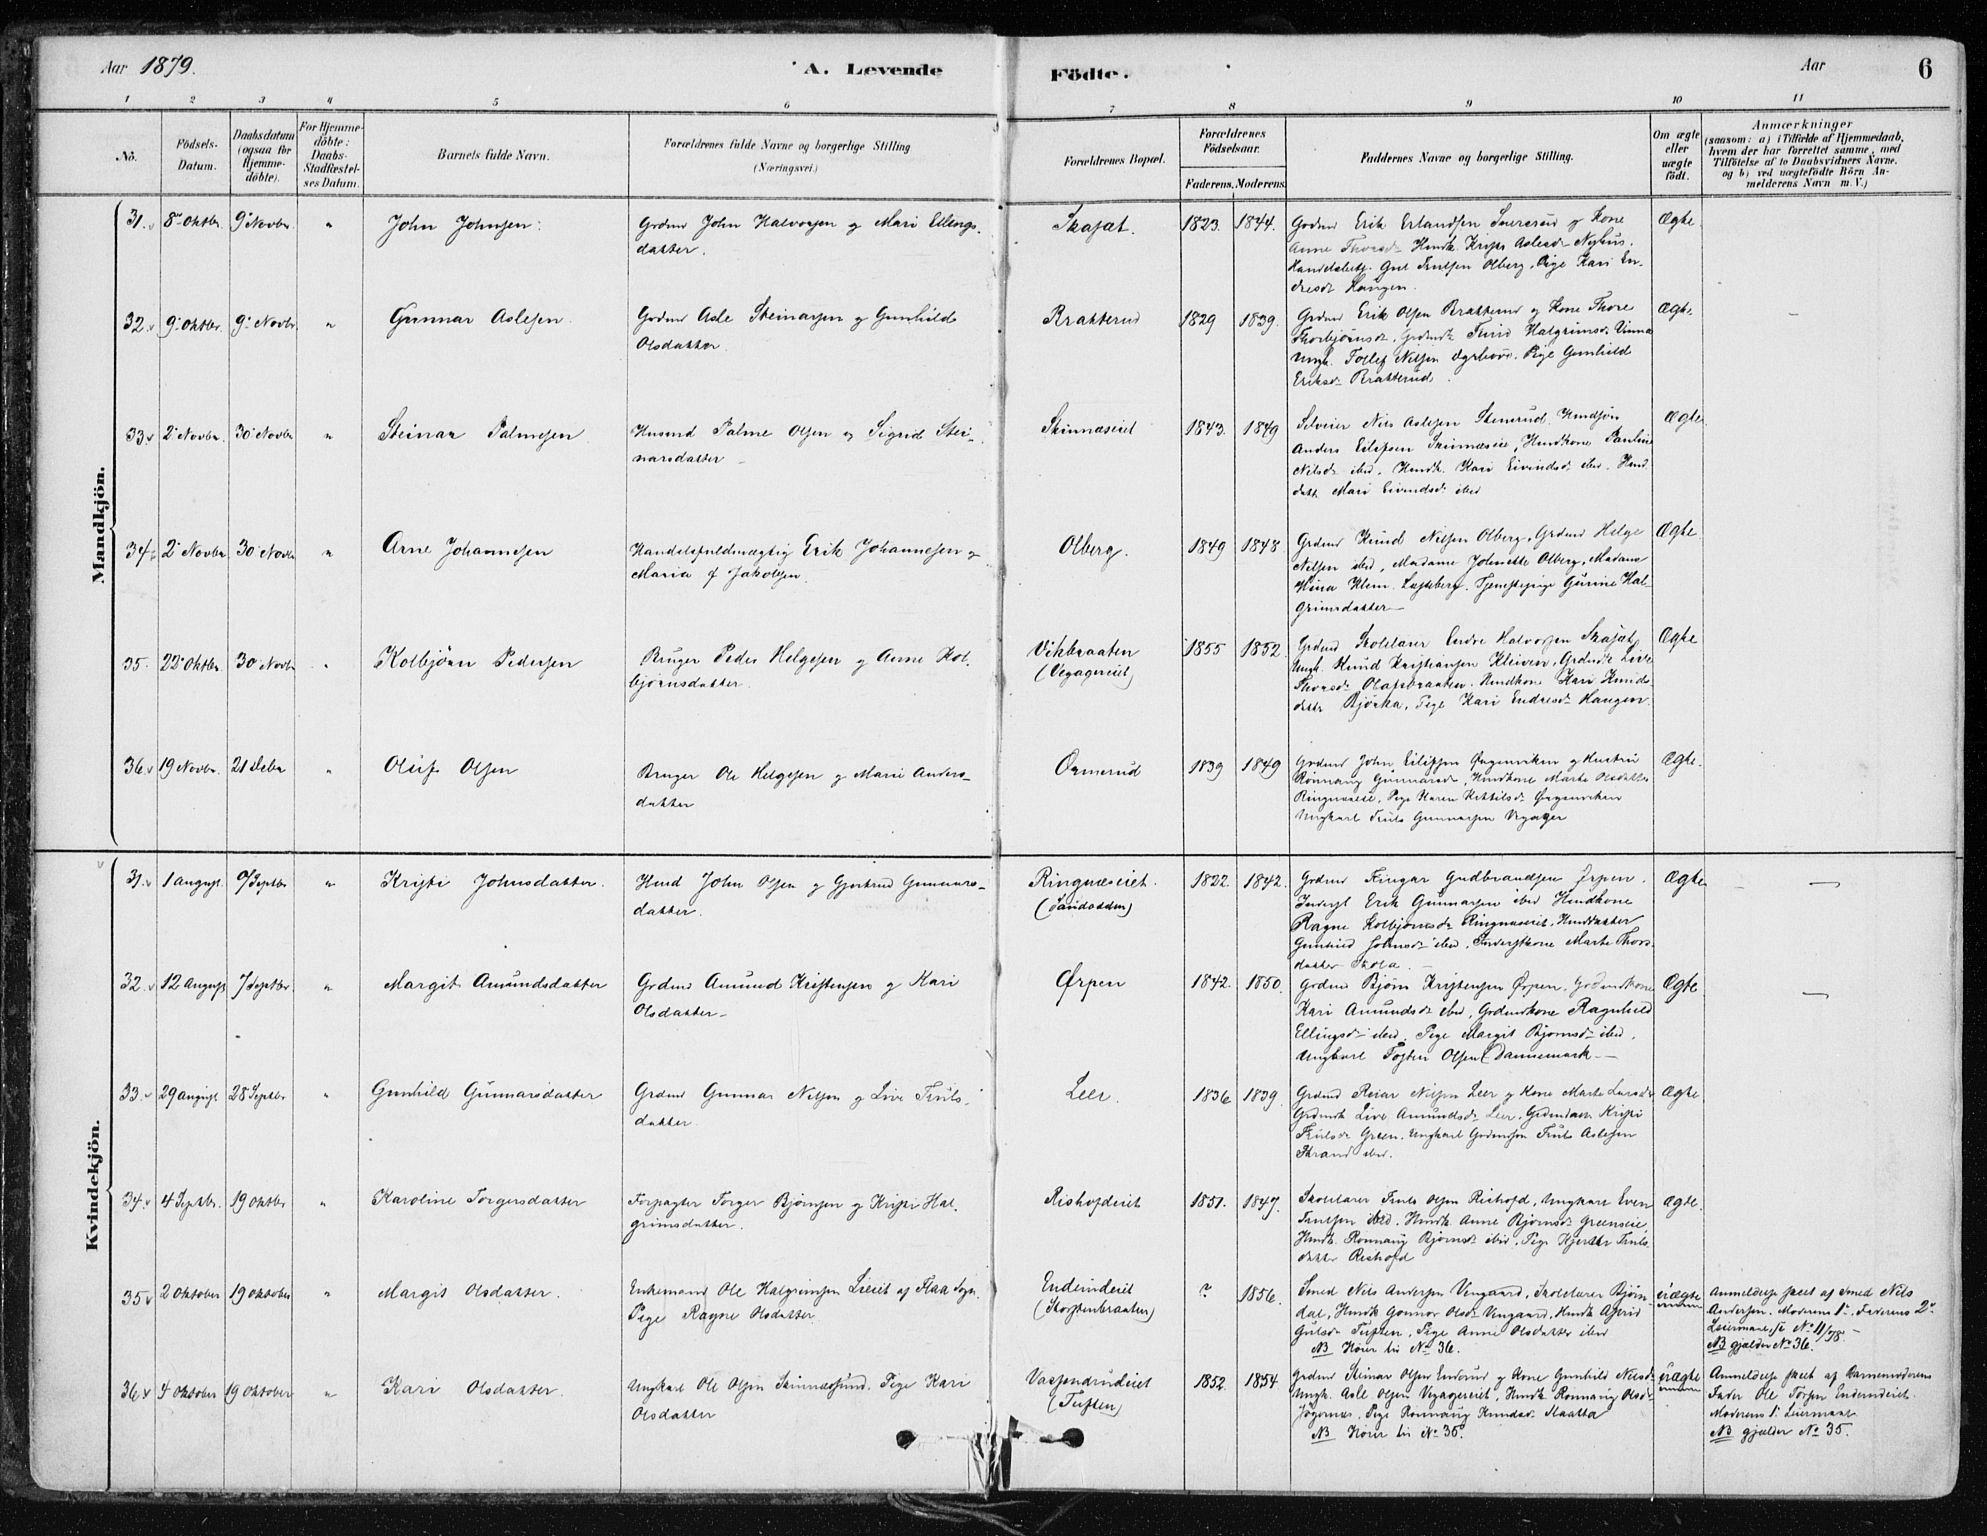 Aar 1879.
A. Levende Födte.
Aar
6
1 2 3 4 5 6 7 8 9 10 11
No.
Födsels-Datum.
Daabsdatum (ogsaa for Hjemme-döbte).
For Hjemme-döbte: Daabs-Stadfæstel-ses Datum.
Barnets fulde Navn.
Forældrenes fulde Navne og borgerlige Stilling
(Næringsvei.)
Forældrenes Bopæl.
Forældrenes Födselsaar.
Faderens. Moderens.
Faddernes Navne og borgerlige Stilling.
Om ægte eller uægte födt.
Anmærkninger
(saasom: a) i Tilfælde af Hjemmedaab,
hvem der har forrettet samme, med
Tilföielse af to Daabsvidners Navne,
og b) ved uægtefödte Börn An-
melderens Navn m. V.)
Mandkjön.
31. 8de Oktbr. 9de Novbr. " John Johnsen. Grdmd John Halvorsen og Mari Ellings-
datter. Skajæt. 1823. 1844. Grdmd Erik Erlandsen og Kone
Anne Thorsdr Hmdk. Kristi Aslesdr Nyhus.
Handelsbetj. Gul Trulsen Olberg, Pige Kari En-
dresdr Haugen. Ægte.
32. 9de Oktbr. 9de Novbr " Gunnar Aslesen. Grdmd Asle Steinarsen og Gunhild
Olsdatter. Brakterud 1829 1839. Grdmd Erik Olsen Brakterud og Kone Thore
Thorbjørnsdr, Grdmdk Turid Halgrimsdr
Ungk. Tollef Nilsen. Pige Gunhild
Eriksdr Brakterud. Ægte. –
33. 2 Novbr. 30 Novbr " Steinar Palmesen Husmd Palme Olsen og Sigrid Stei-
narsdatter – Skinnæseiet 1843. 1849 Selveier Nils Aslesen Stenerud. Hmdsøn
Anders Eilefsen Skinnæseie, Hmdkone Pauline
Nilsdr ibid. Hmdk. Kari Eivindsdr ibid. Hmd-
datt. Mari Eivindsdr ibid Ægte
34. 2 Novbr 30 Novbr " Arne Johannesen Handelsfuldmægtig Erik Johannesen og
Maria f. Jakobsen. Olberg. 1849 1848. Grdmd Knud Nilsen Olberg, Grdmd Helge
Nilsen ibid, Madame Johnette Olberg, Madame
Klem. Tjenestepige Gunne Hal-
grimsdatter – Ægte
35. 22 Oktbr 30 Novbr " Kolbjörn Pedersen Bruger Peder Helgesen og Anne Kol-
bjørnsdatter. Vikbraaten
(Vegagereiet) 1855 1852. Grdmd Skolelærer Endre Halvorsen Skajæt,
Ungk. Knud Kristiansen Kleiven, Grdmdk Live
Thorsdr Olafsbraaten. Hmdkone Kari Knuds-
datter Bjørka, Pige Kari Endresdr Haugen. Ægte
36. 19 Novbr. 21 Debr " Oluf Olsen Bruger Ole Helgesen og Marie Anders-
datter Ormerud 1839 1849 Grdmd John Eilifsen og Hustru
Rønnaug Gunnarsdr, Hmdkone Marte Olsdatter
Ringnæseie, Pige Karen Kittilsdr
Ungkarl Truls Gunnarsen Vegager Ægte.
Kvindekjön.
31. 1 August 7 Septbr " Kristi Johnsdatter. Hmd John Olsen og Gjertrud Gunnars-
datter. Ringnæseiet.
(Sandodden) 1822. 1842. Grdmd Ringar Gudbrandsen Ørpen.
Inderst Erik Gunnarsen ibid Hmdkone
Ragne Kolbjørnsdr Ringnæseiet, Hmddatter
Gunhild Johnsdr ibid, Inderstkone Marte Thors-
datter – Ægte – –
32. 12 August 7 Septbr " Margit Amundsdatter Grdmd Amund Kristensen og Kari
Olsdatter – Ørpen 1842. 1850. Grdmd Bjørn Kristensen Ørpen. Grdmdkone
Kari Amundsdr ibid, Grdmdkone Ragnhild
Ellingsdr ibid. Pige Margit Bjørnsdr ibid.
Ungkarl Tosten Olsen Dannemark. – Ægte –
33. 29 August 28 Septbr " Gunhild Gunnarsdatter Grdmd Gunnar Nilsen og Live Truls-
datter. Leer. 1836 1839. Grdmd Reiar Nilsen Leer og Kone Marte Larsdr
Grdmdk Live Amundsdr Leer. Kristi
Trulsdr Green. Ungkarl Grdmdsøn Truls Aslesen
Strand ibid. Ægte
34. 4 Septbr. 19 Oktbr " Karoline Torgersdatter Forpagter Torger Bjørnsen og Kristi Hal-
grimsdatter. Rishofdeiet 1851. 1847. Skolelærer Truls Olsen Rishofd, Ungkarl Even
Trulsen ibid. Hmdk. Anne Bjørnsdr Greenseie
Hmdk. Rønnaug Bjørnsdr ibid, Pige Truls-
datter Rishofd Ægte.
35 2 Oktober 19 Oktober " Margit Olsdatter. Enkemand Ole Halgrimsen Lieeit af Flaa Sogn.
Pige Ragne Olsdatter. Enderudeiet
(Skorstenbraaten) ? 1856. Smed Nils Andersen Vengaard, Skolelærer Bjørn-
dal, Hmdk Gonnor Olsdr Vengaard, Hmdk Astrid
Gulsdr Tuften, Pige Anne Olsdatter ibid
NB Hører til No 36. uægte Anmeldelse skeet af Smed Nils
Andersen. Moderens 1ste. Faderens 2det
Leiermaal, se No 11/78. –
NB gjælder No 36.
36. 4 Oktober 19 Oktober " Kari Olsdatter. Ungkarl Ole Olsen Skinnæssund. Pige Kari
Olsdatter Vassendrudeiet
(Tuften) 1852. 1854. Grdmd Steinar Olsen Enderud og Kone Gunhild Nilsdr
Ungk. Asle Olsen Vegagereiet, Hmdk Rønnaug Olsdr
Pige Rønnaug Knudsdr
NB Hører til No 35. uægte Anmeldelse skeet af Barnemoderens
Fader Ole Enderudeiet.
Moderens 1ste Leiermaal
NB gjælder No 35.